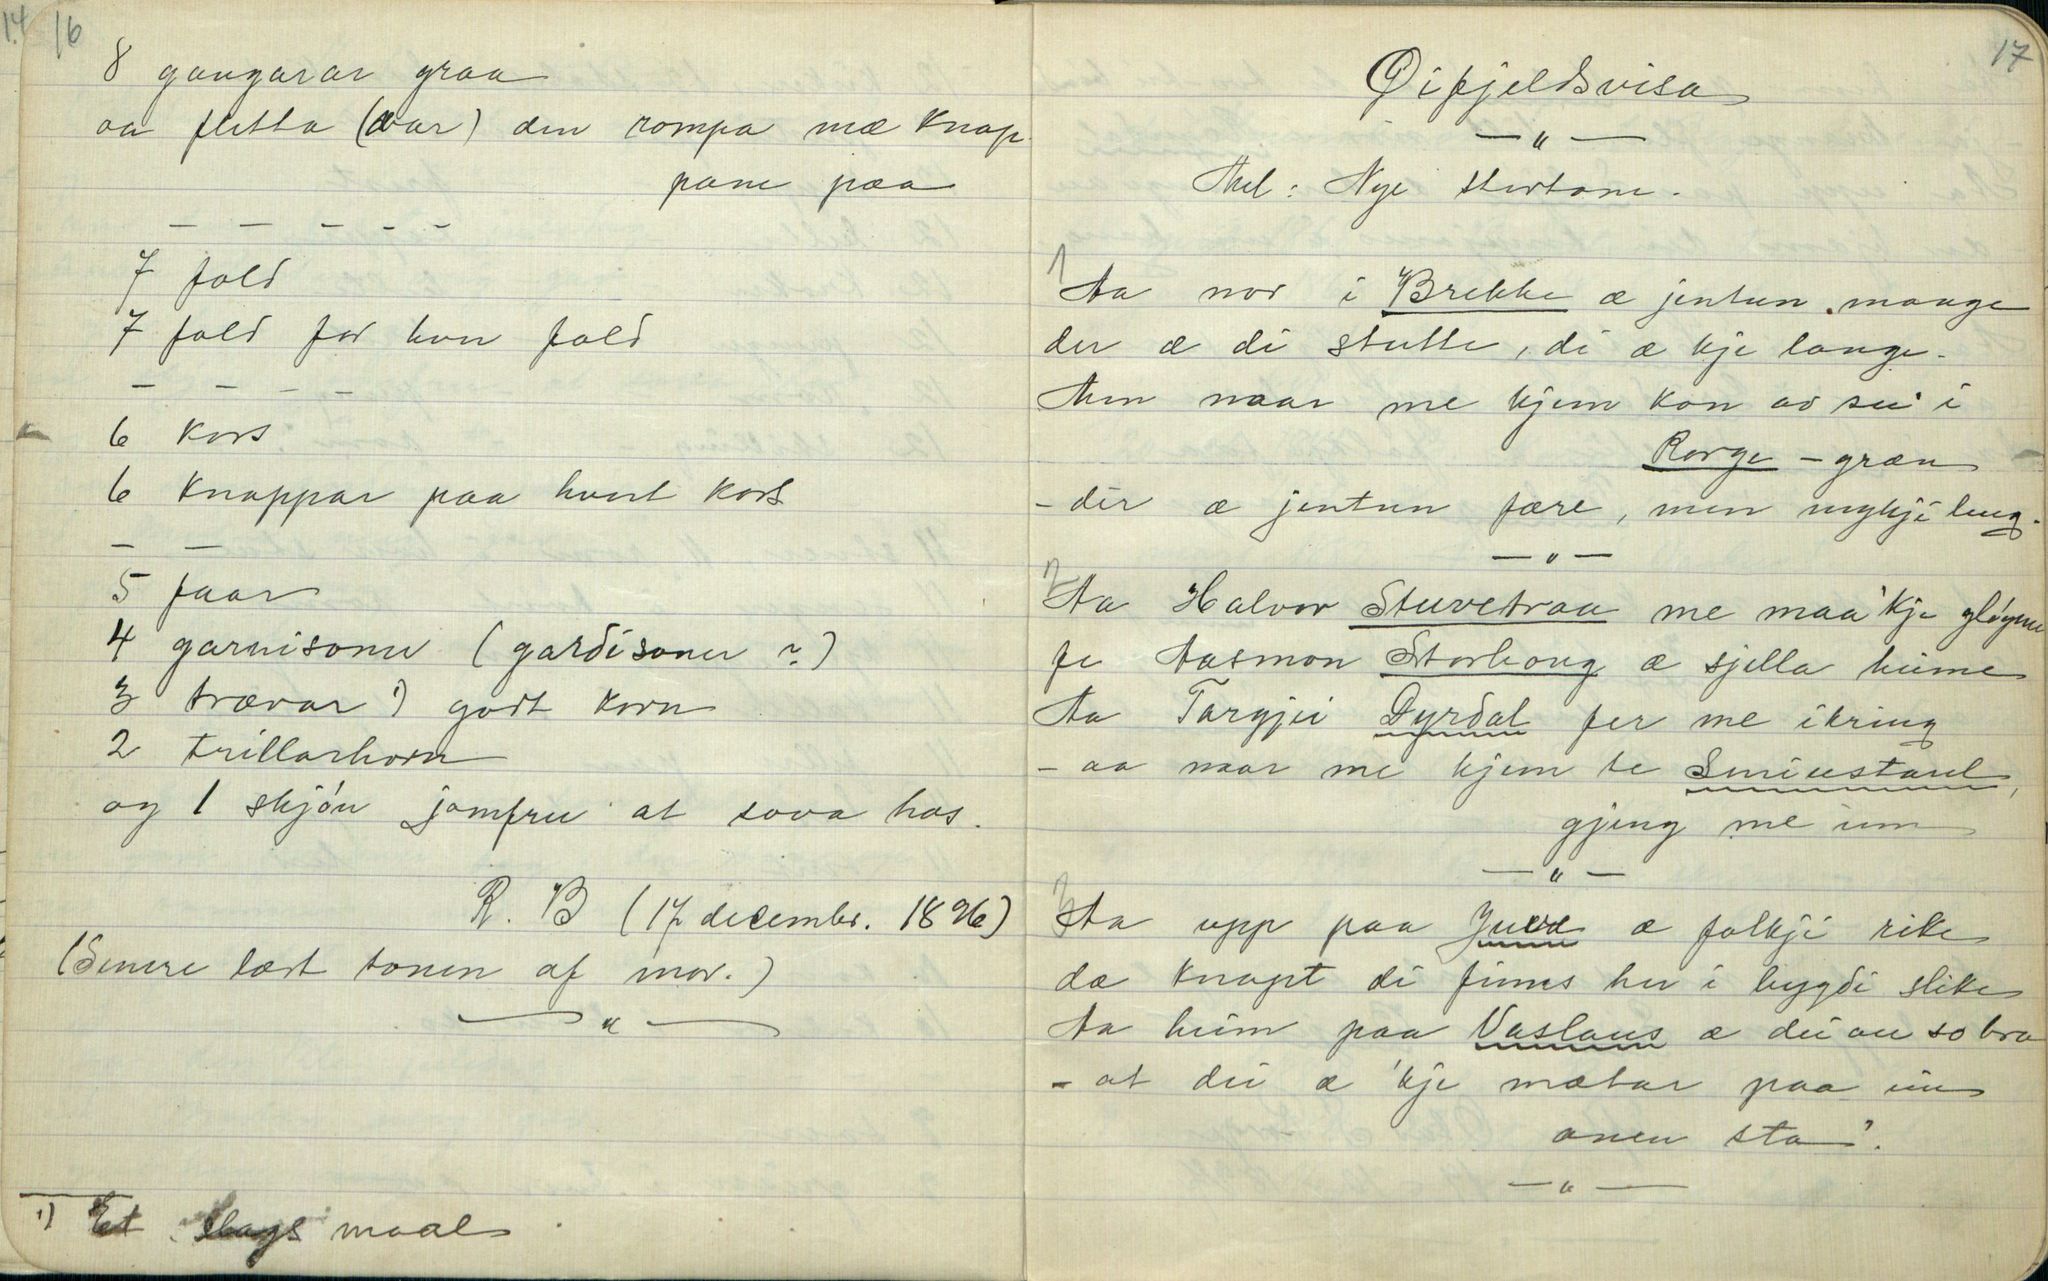 14 16
8 gangarar graa
aa fletta (var) den rompa mæ knap-
pane paa
— — — — —
7 fold
7 fold for hvor fold
— — — —
6 kors
6 knappar paa hvort kors
— —
5 faar
4 garnisoner (gardisoner ?)
3 trævar ¹) godt korn
2 trillarhorn
og 1 skjön jomfru at sova hos.
R. B (17 decembr. 1896)
(Senere lært tonen af mor.)
— " —
¹) Et slags maal
17
Øifjeldsvisa
— " —
Mel: Nye stortone.
1 Aa nor i Brekke æ jentun mange
der æ di stutte, di æ kje lange.
Men naar me kjem kon av sei i
Rorge - græn
- der æ jentun fære, men mykji leng.
— " —
2 Aa Halvor Stuvetraa me maa 'kje gløyme
fe Aasmon Storhoug æ sjella heime
Aa Targjei Dyrdal fer me ikring
- aa naar me kjem te Smiustaul,
gjeng me inn
— " —
3 Aa upp paa Juve æ folkji rike
dæ knapt di finns her i bygdi slike
Aa heim paa Vaslaus æ dei au so bra
- at dei æ 'kje mætar paa ein
anen sta'.
— " —